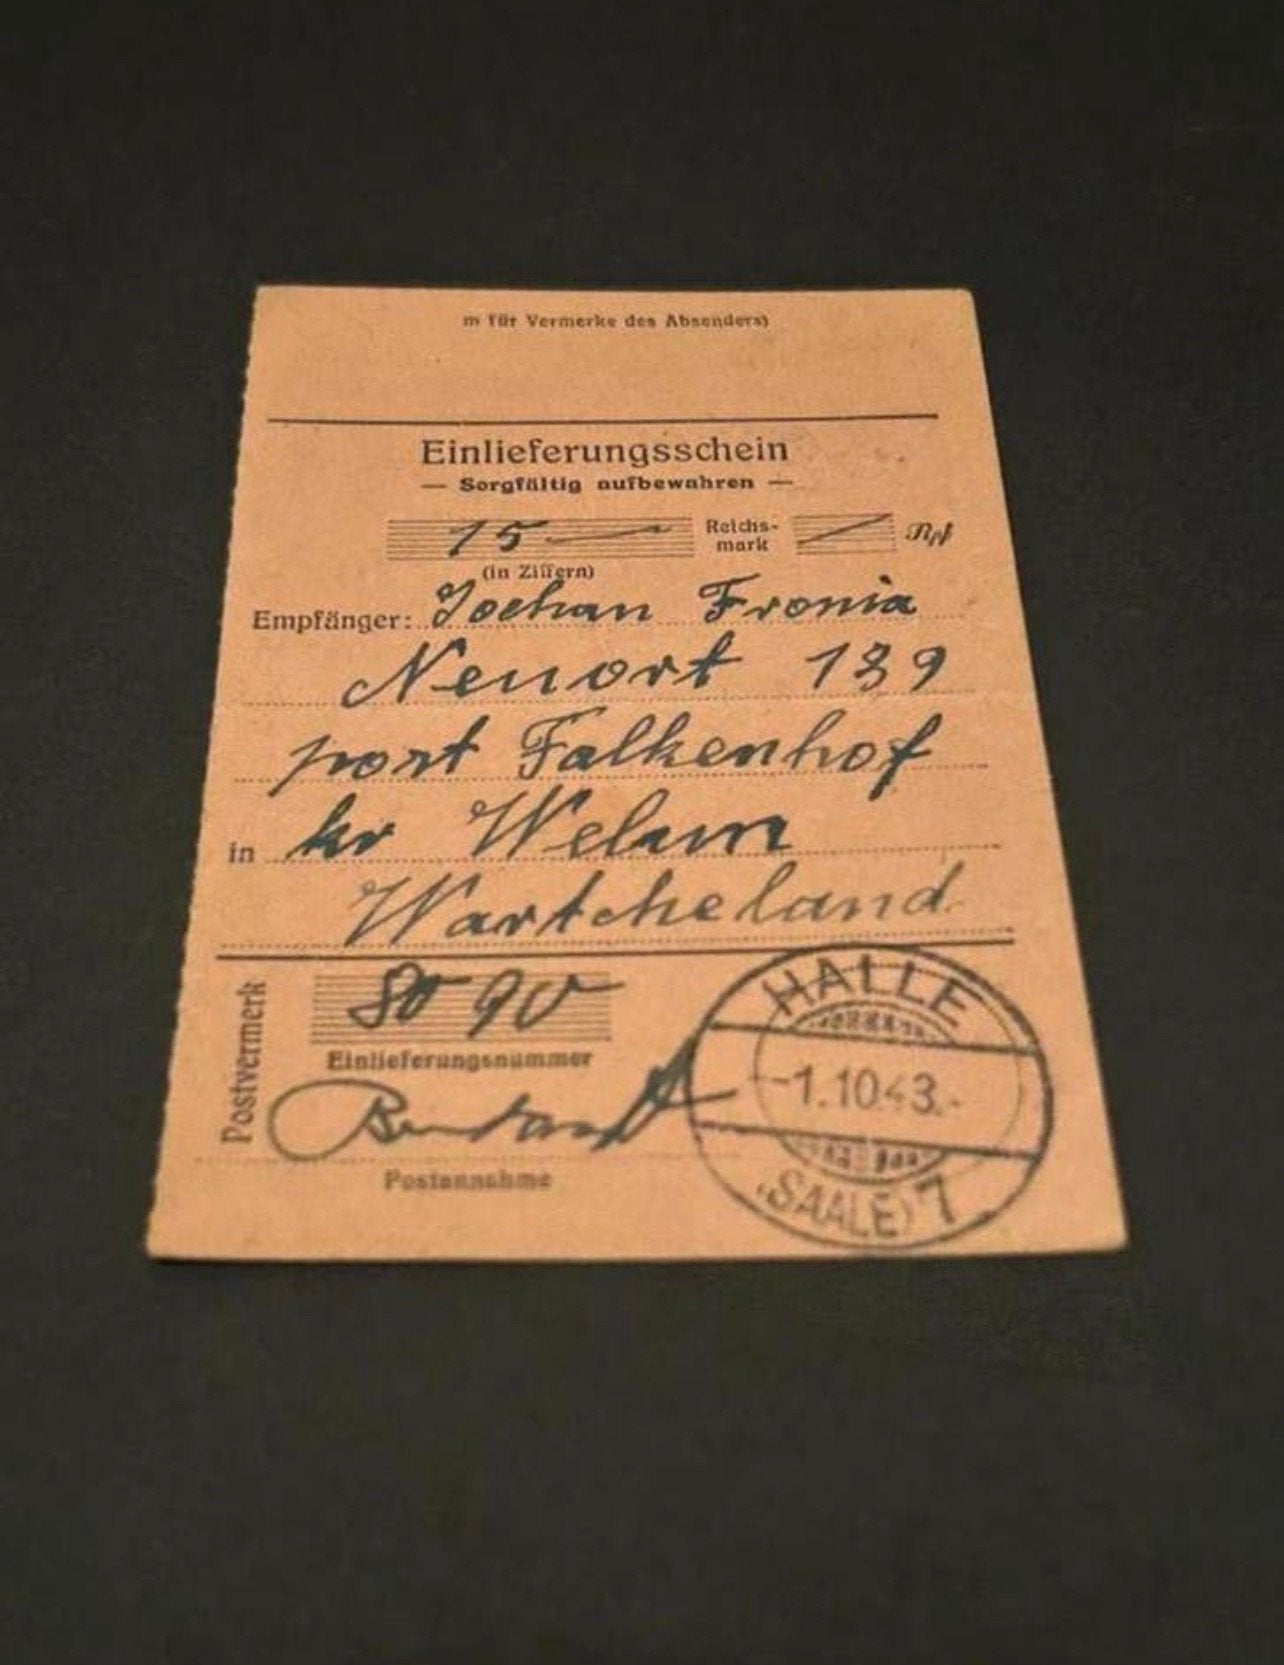 m für Vermerke des Absenders)
Einlieferungsschein
— Sorgfältig aufbewahren —
15 — Reichs-
mark Rpf
(in Ziffern)
Empfänger: Jochan Fronia
Neuort 139
post Falkenhof
in kr Welum
Wartcheland
Postvermerk
80 90
Einlieferungsnummer
Postannahme
HALLE
-1.10.43.-
(SAALE) 7